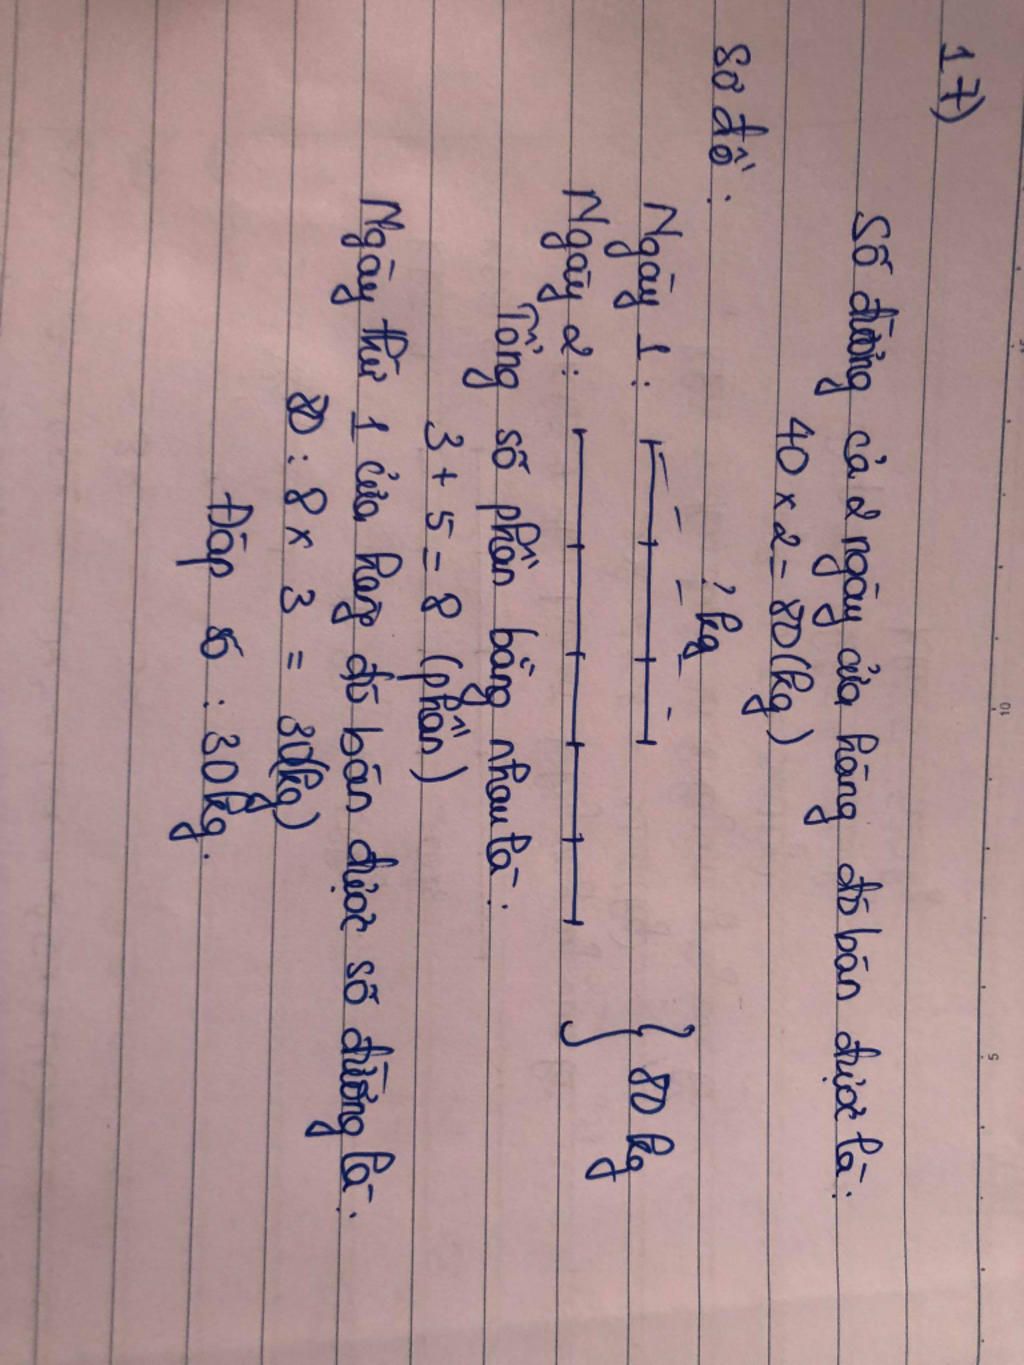 17)
Số đường cả 2 ngày cửa hàng đã bán được là:
40 x 2 = 80 (kg)
Sơ đồ:
? kg
Ngày 1:
80 kg
Ngày 2:
Tổng số phần bằng nhau là:
3 + 5 = 8 (phần)
Ngày thứ 1 cửa hàng đã bán được số đường là:
80 : 8 x 3 = 30 (kg)
Đáp số : 30 kg.
10
5